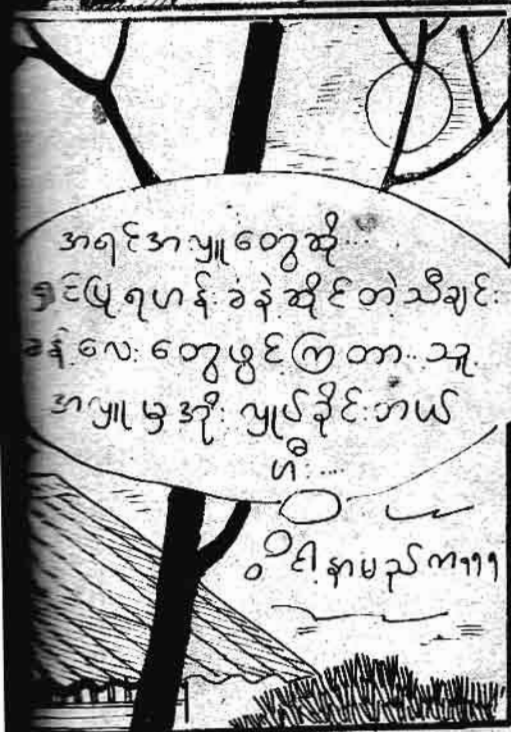 အရင်အလှူတွေဆို...
ရှင်ပြုရဟန်းခံနဲ့ဆိုင်တဲ့သီချင်း
ခန့်လေးတွေဖွင့်ကြတာ..သူ့
အလှူမှအိုး လှုပ်ခိုင်းဘယ်
ဟီး....
ငါ့နာမည်က၅၅၅